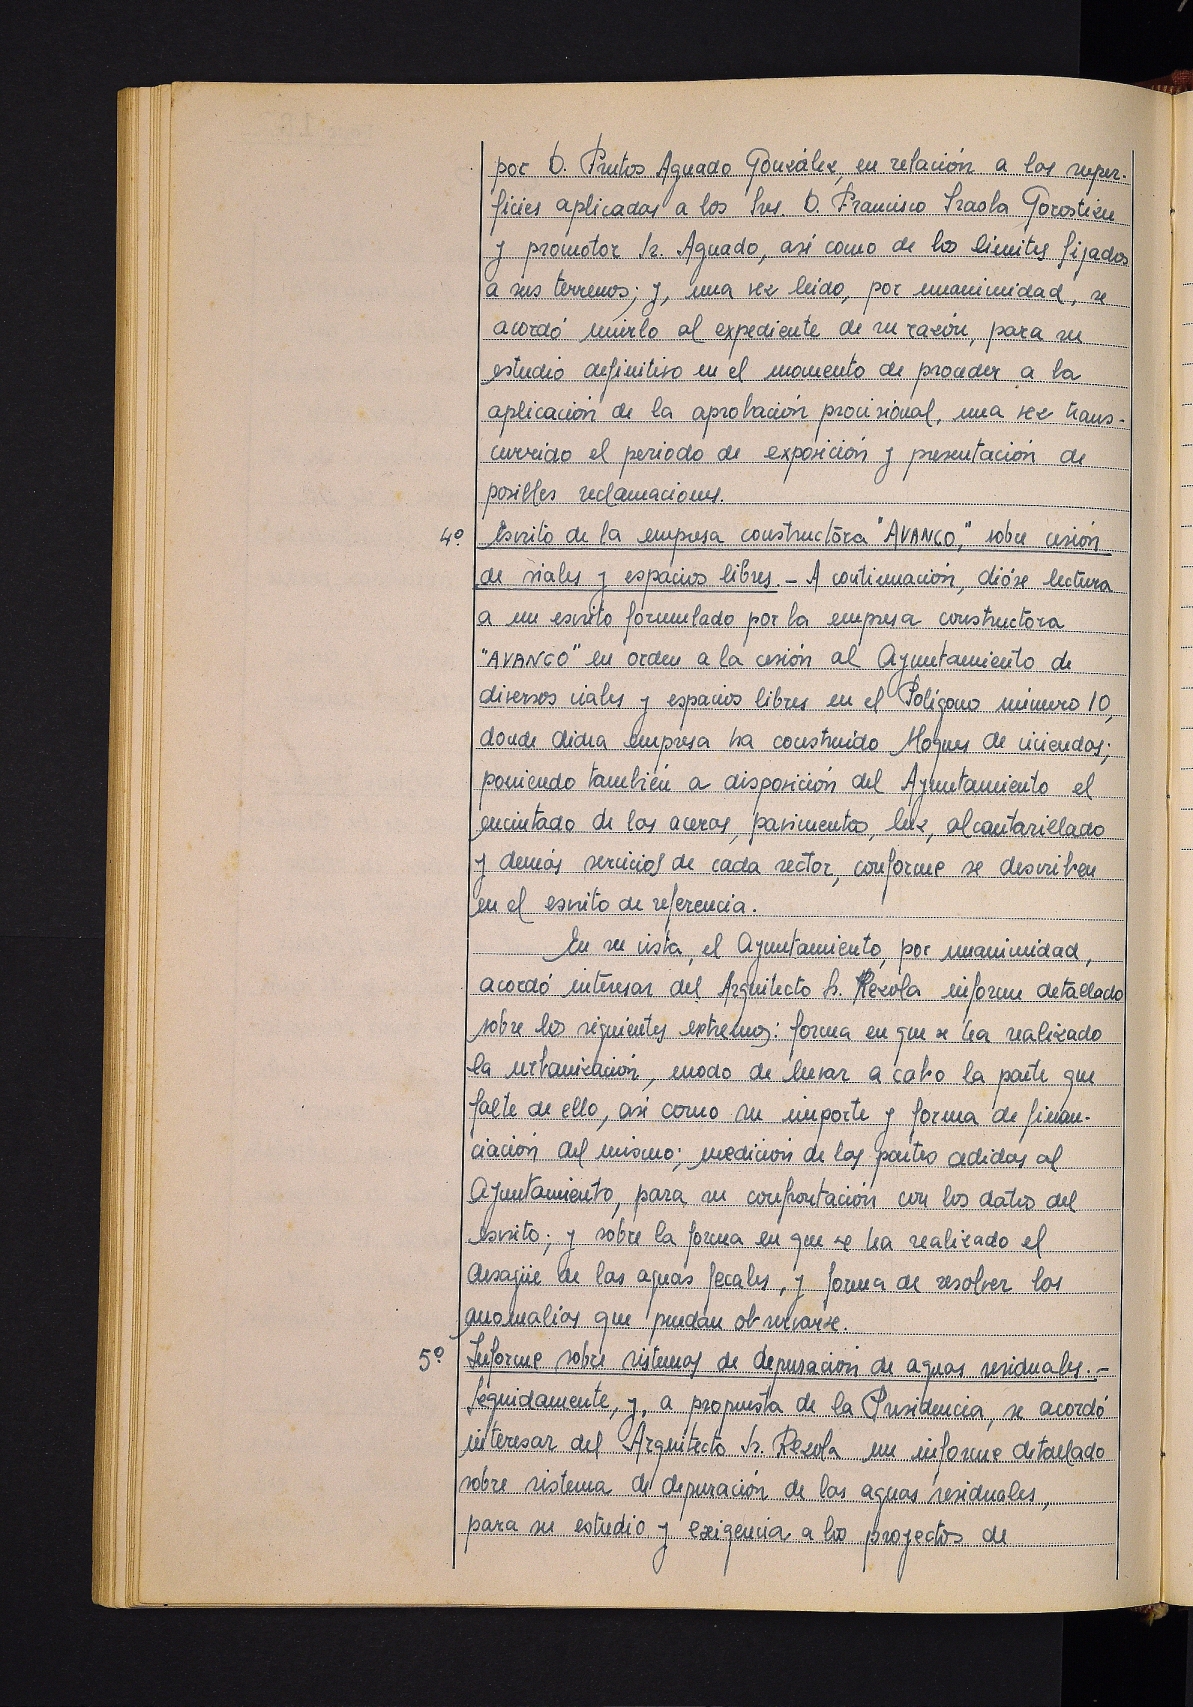 por D. Frutos Aguado González, en relación a las super-
ficies aplicadas a los Sres. D. Francisco Iraola Gorostizu
y promotor Sr. Aguado, así como de los límites fijados
a sus terrenos; y, una vez leído, por unanimidad, se
acordó unirlo al expediente de su razón, para su
estudio definitivo en el momento de proceder a la
aplicación de la aprobación provisional, una vez trans-
currido el periodo de exposición y presentación de
posibles reclamaciones.
4º Escrito de la empresa constructora "AVANCO", sobre cesión
de viales y espacios libres.- A continuación, dióse lectura
a un escrito formulado por la empresa constructora
"AVANCO" en orden a la cesión al Ayuntamiento de
diversos viales y espacios libres en el Polígono número 10,
donde dicha empresa ha construído bloques de viviendas;
poniendo también a disposición del Ayuntamiento el
encintado de las aceras, pavimentos, luz, alcantarillado
y demás servicios de cada sector, conforme se describen
en el escrito de referencia.
En su vista, el Ayuntamiento, por unanimidad,
acordó interesar del Arquitecto Sr. Rezola informe detallado
sobre los siguientes extremos: forma en que se ha realizado
la urbanización, modo de llevar a cabo la parte que
falte de ello, así como su importe y forma de finan-
ciación del mismo; medición de las partes cedidas al
Ayuntamiento, para su confrontación con los datos del
escrito; y sobre la forma en que se ha realizado el
desagüe de las aguas fecales, y forma de resolver las
anomalías que puedan observarse.
5º Informe sobre sistemas de depuración de aguas residuales.-
Seguidamente, y, a propuesta de la Presidencia, se acordó
interesar del Arquitecto Sr. Rezola un informe detallado
sobre sistema de depuración de las aguas residuales,
para su estudio y exigencia a los proyectos de